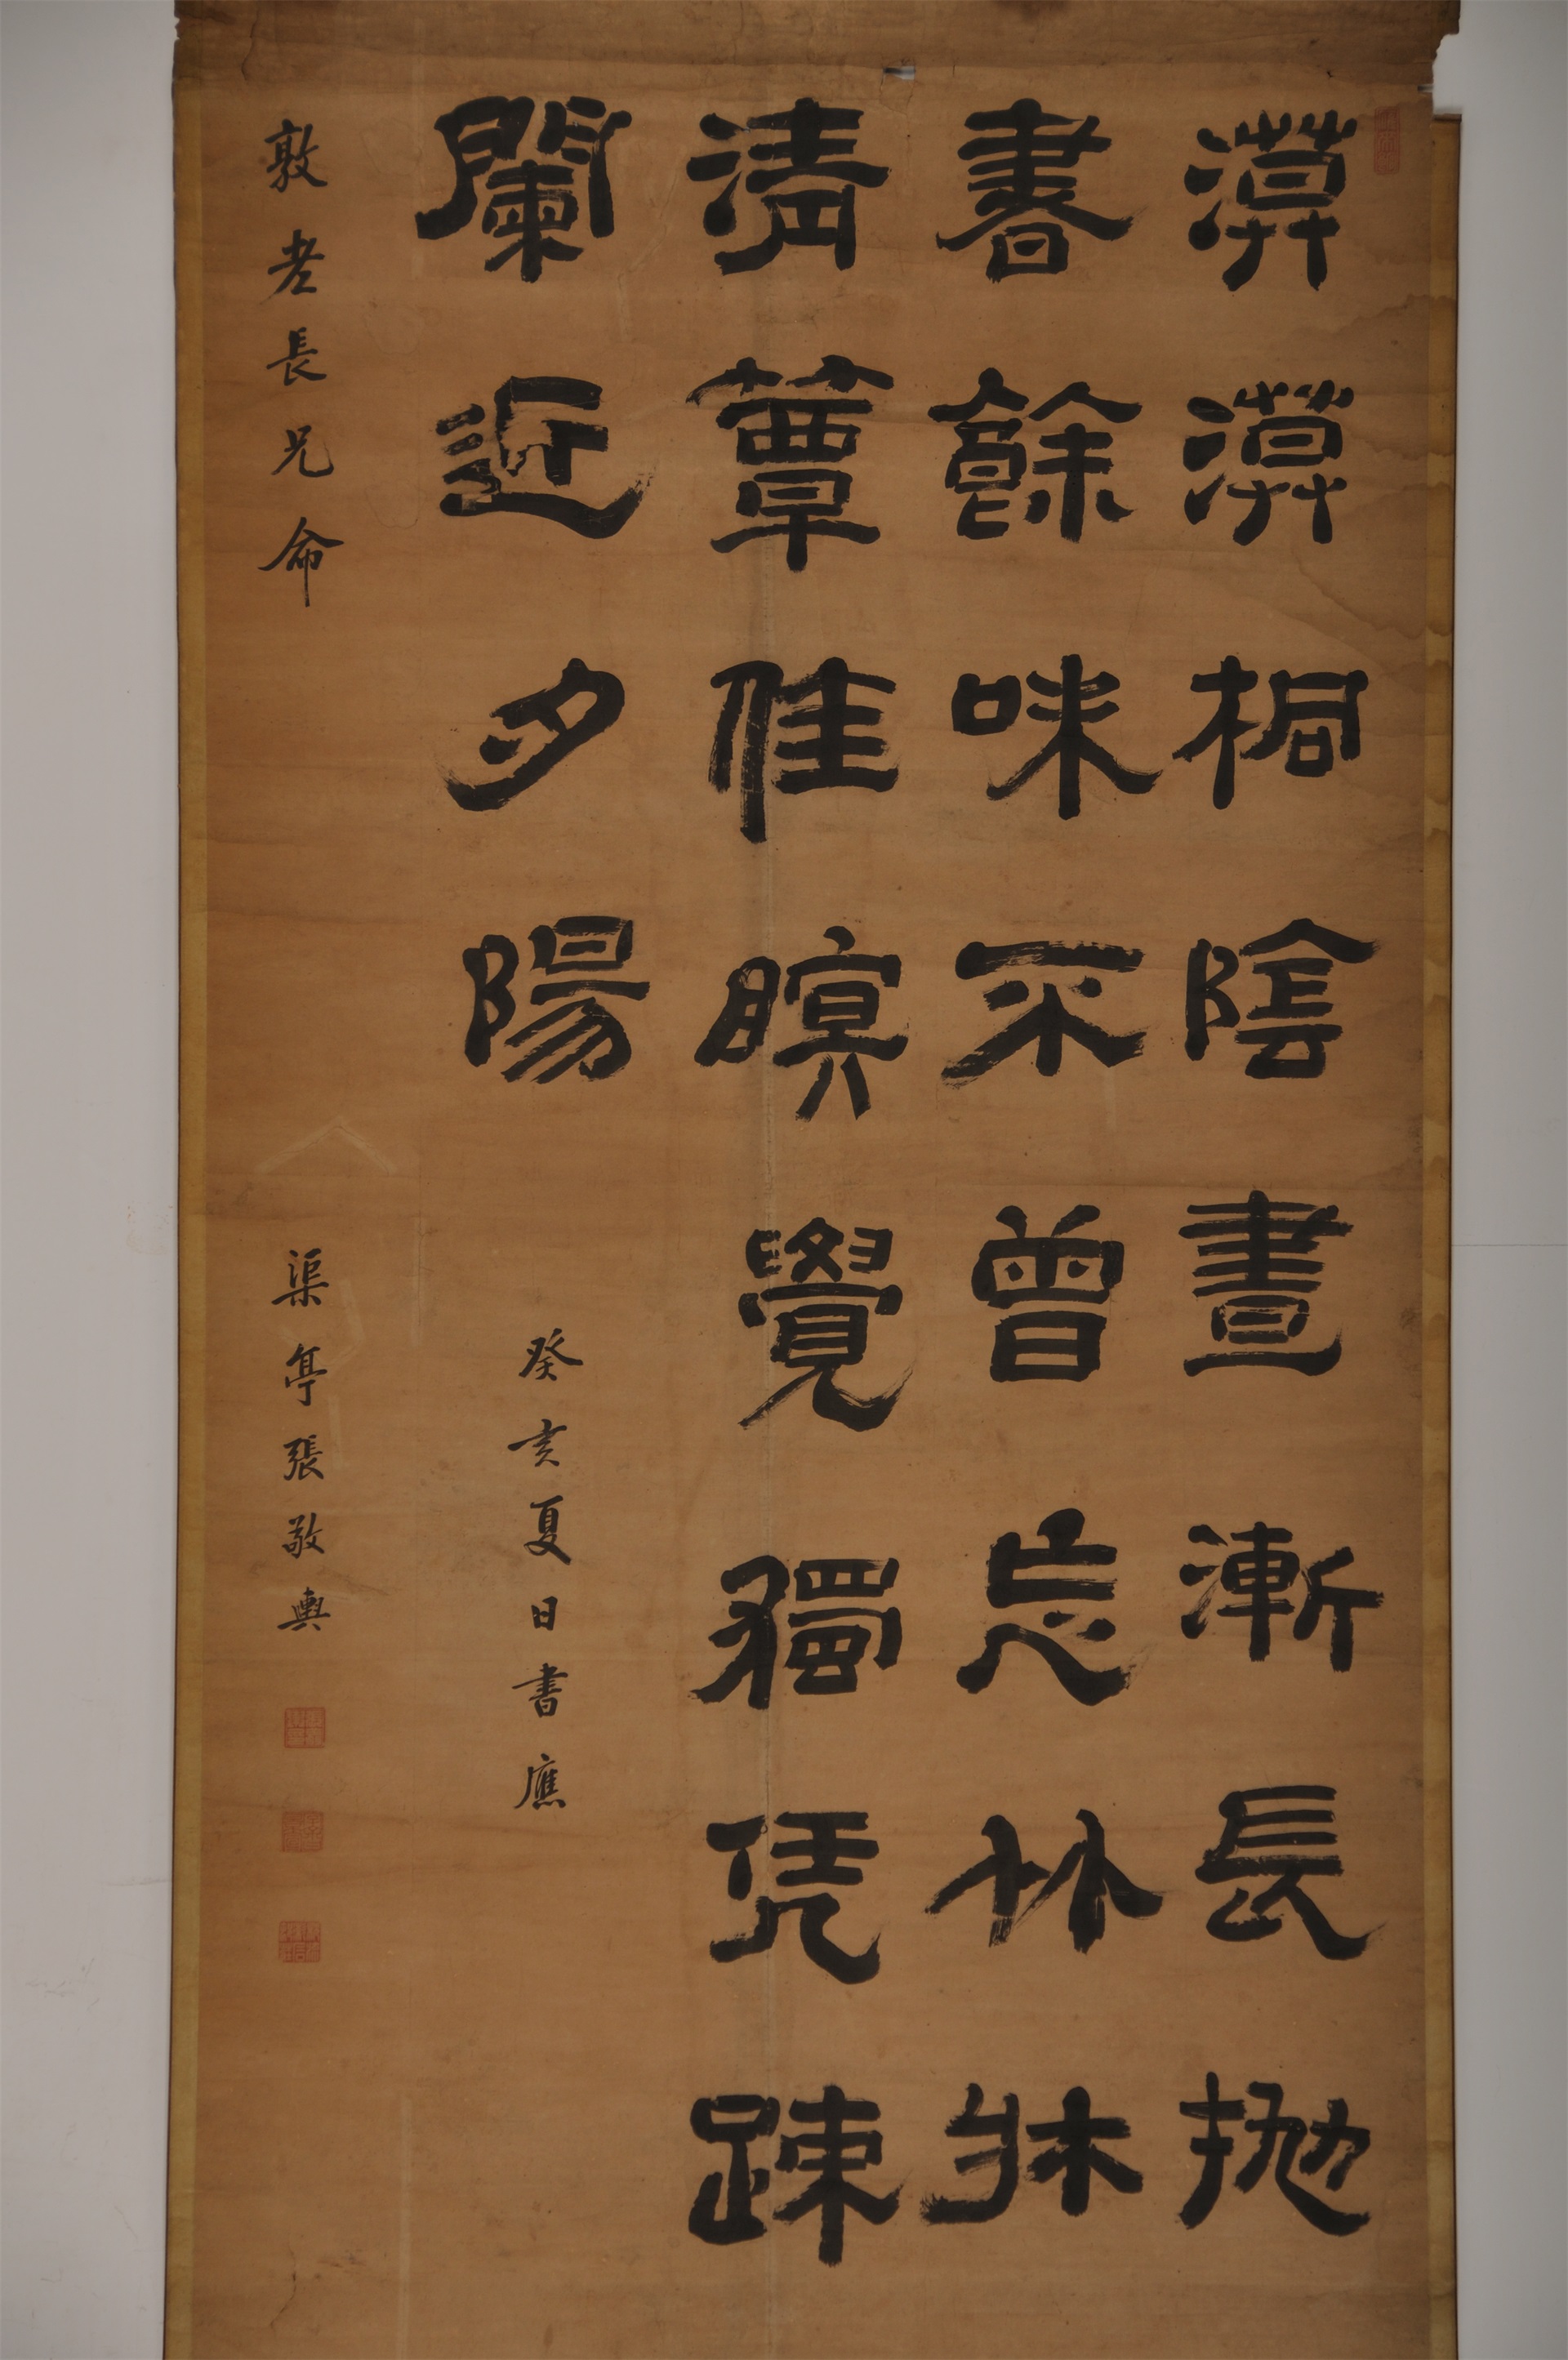 漠漠桐陰晝漸長抛
書餘味不曾忘竹牀
清簟佳瞑覺獨凭疎
闌近夕陽
癸亥夏日書應
敦老長兄命
渠亭張敬輿